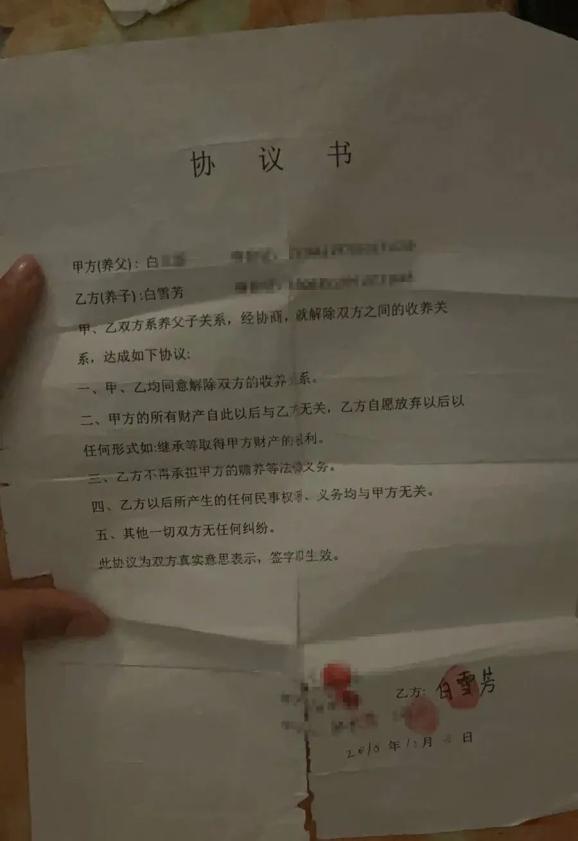 协 议 书
甲方(养父)：白
乙方(养子):白雪芳
甲、乙双方系养父子关系，经协商，就解除双方之间的收养关
系，达成如下协议:
一、甲、乙均同意解除双方的收养关系。
二、甲方的所有财产自此以后与乙方无关，乙方自愿放弃以后以
任何形式如:继承等取得甲方财产的权利。
三、乙方不再承担甲方的赡养等法律义务。
四、乙方以后所产生的任何民事权利、义务均与甲方无关。
五、其他一切双方无任何纠纷。
此协议为双方真实意思表示，签字即生效。
乙方: 白雪芳
2010年12月 日